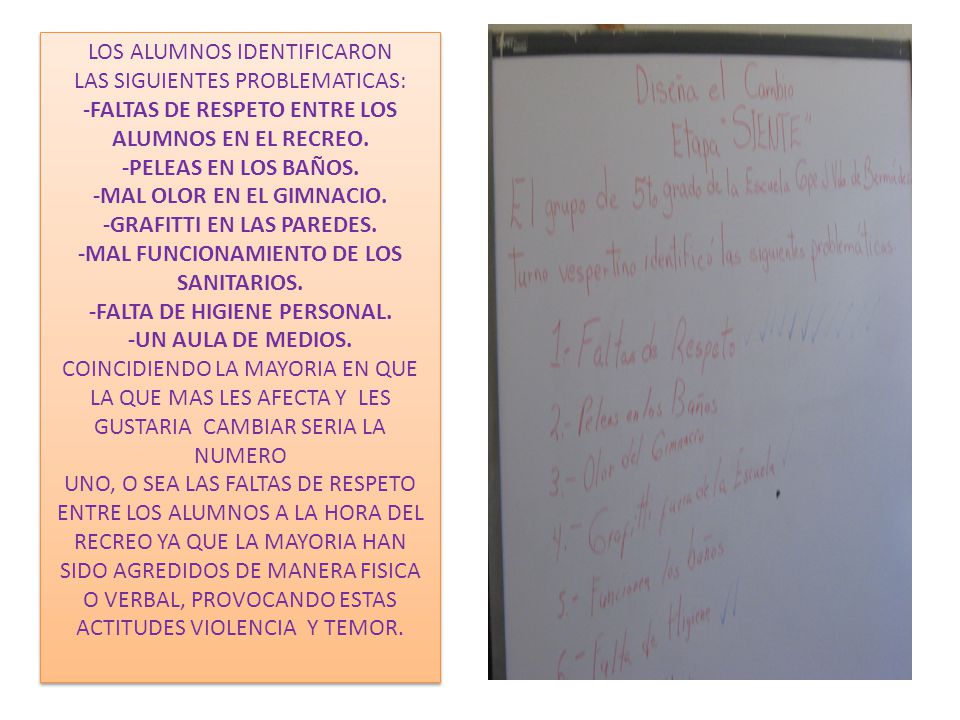 LOS ALUMNOS IDENTIFICARON
LAS SIGUIENTES PROBLEMATICAS:
-FALTAS DE RESPETO ENTRE LOS
ALUMNOS EN EL RECREO.
-PELEAS EN LOS BAÑOS.
-MAL OLOR EN EL GIMNACIO.
-GRAFITTI EN LAS PAREDES.
-MAL FUNCIONAMIENTO DE LOS
SANITARIOS.
-FALTA DE HIGIENE PERSONAL.
-UN AULA DE MEDIOS.
COINCIDIENDO LA MAYORIA EN QUE
LA QUE MAS LES AFECTA Y LES
GUSTARIA CAMBIAR SERIA LA
NUMERO
UNO, O SEA LAS FALTAS DE RESPETO
ENTRE LOS ALUMNOS A LA HORA DEL
RECREO YA QUE LA MAYORIA HAN
SIDO AGREDIDOS DE MANERA FISICA
O VERBAL, PROVOCANDO ESTAS
ACTITUDES VIOLENCIA Y TEMOR.
Diseña el Cambio
Etapa "SIENTE"
El grupo de 5to grado de la Escuela Gpe J Vda de Bermúdez
turno vespertino identificó las siguientes problemáticas
1.- Faltas de Respeto
2.- Peleas en los Baños
3.- Olor del Gimnacio
4.- Grafitti fuera de la Escuela
5.- Funcionen los baños
6.- Falta de Higiene